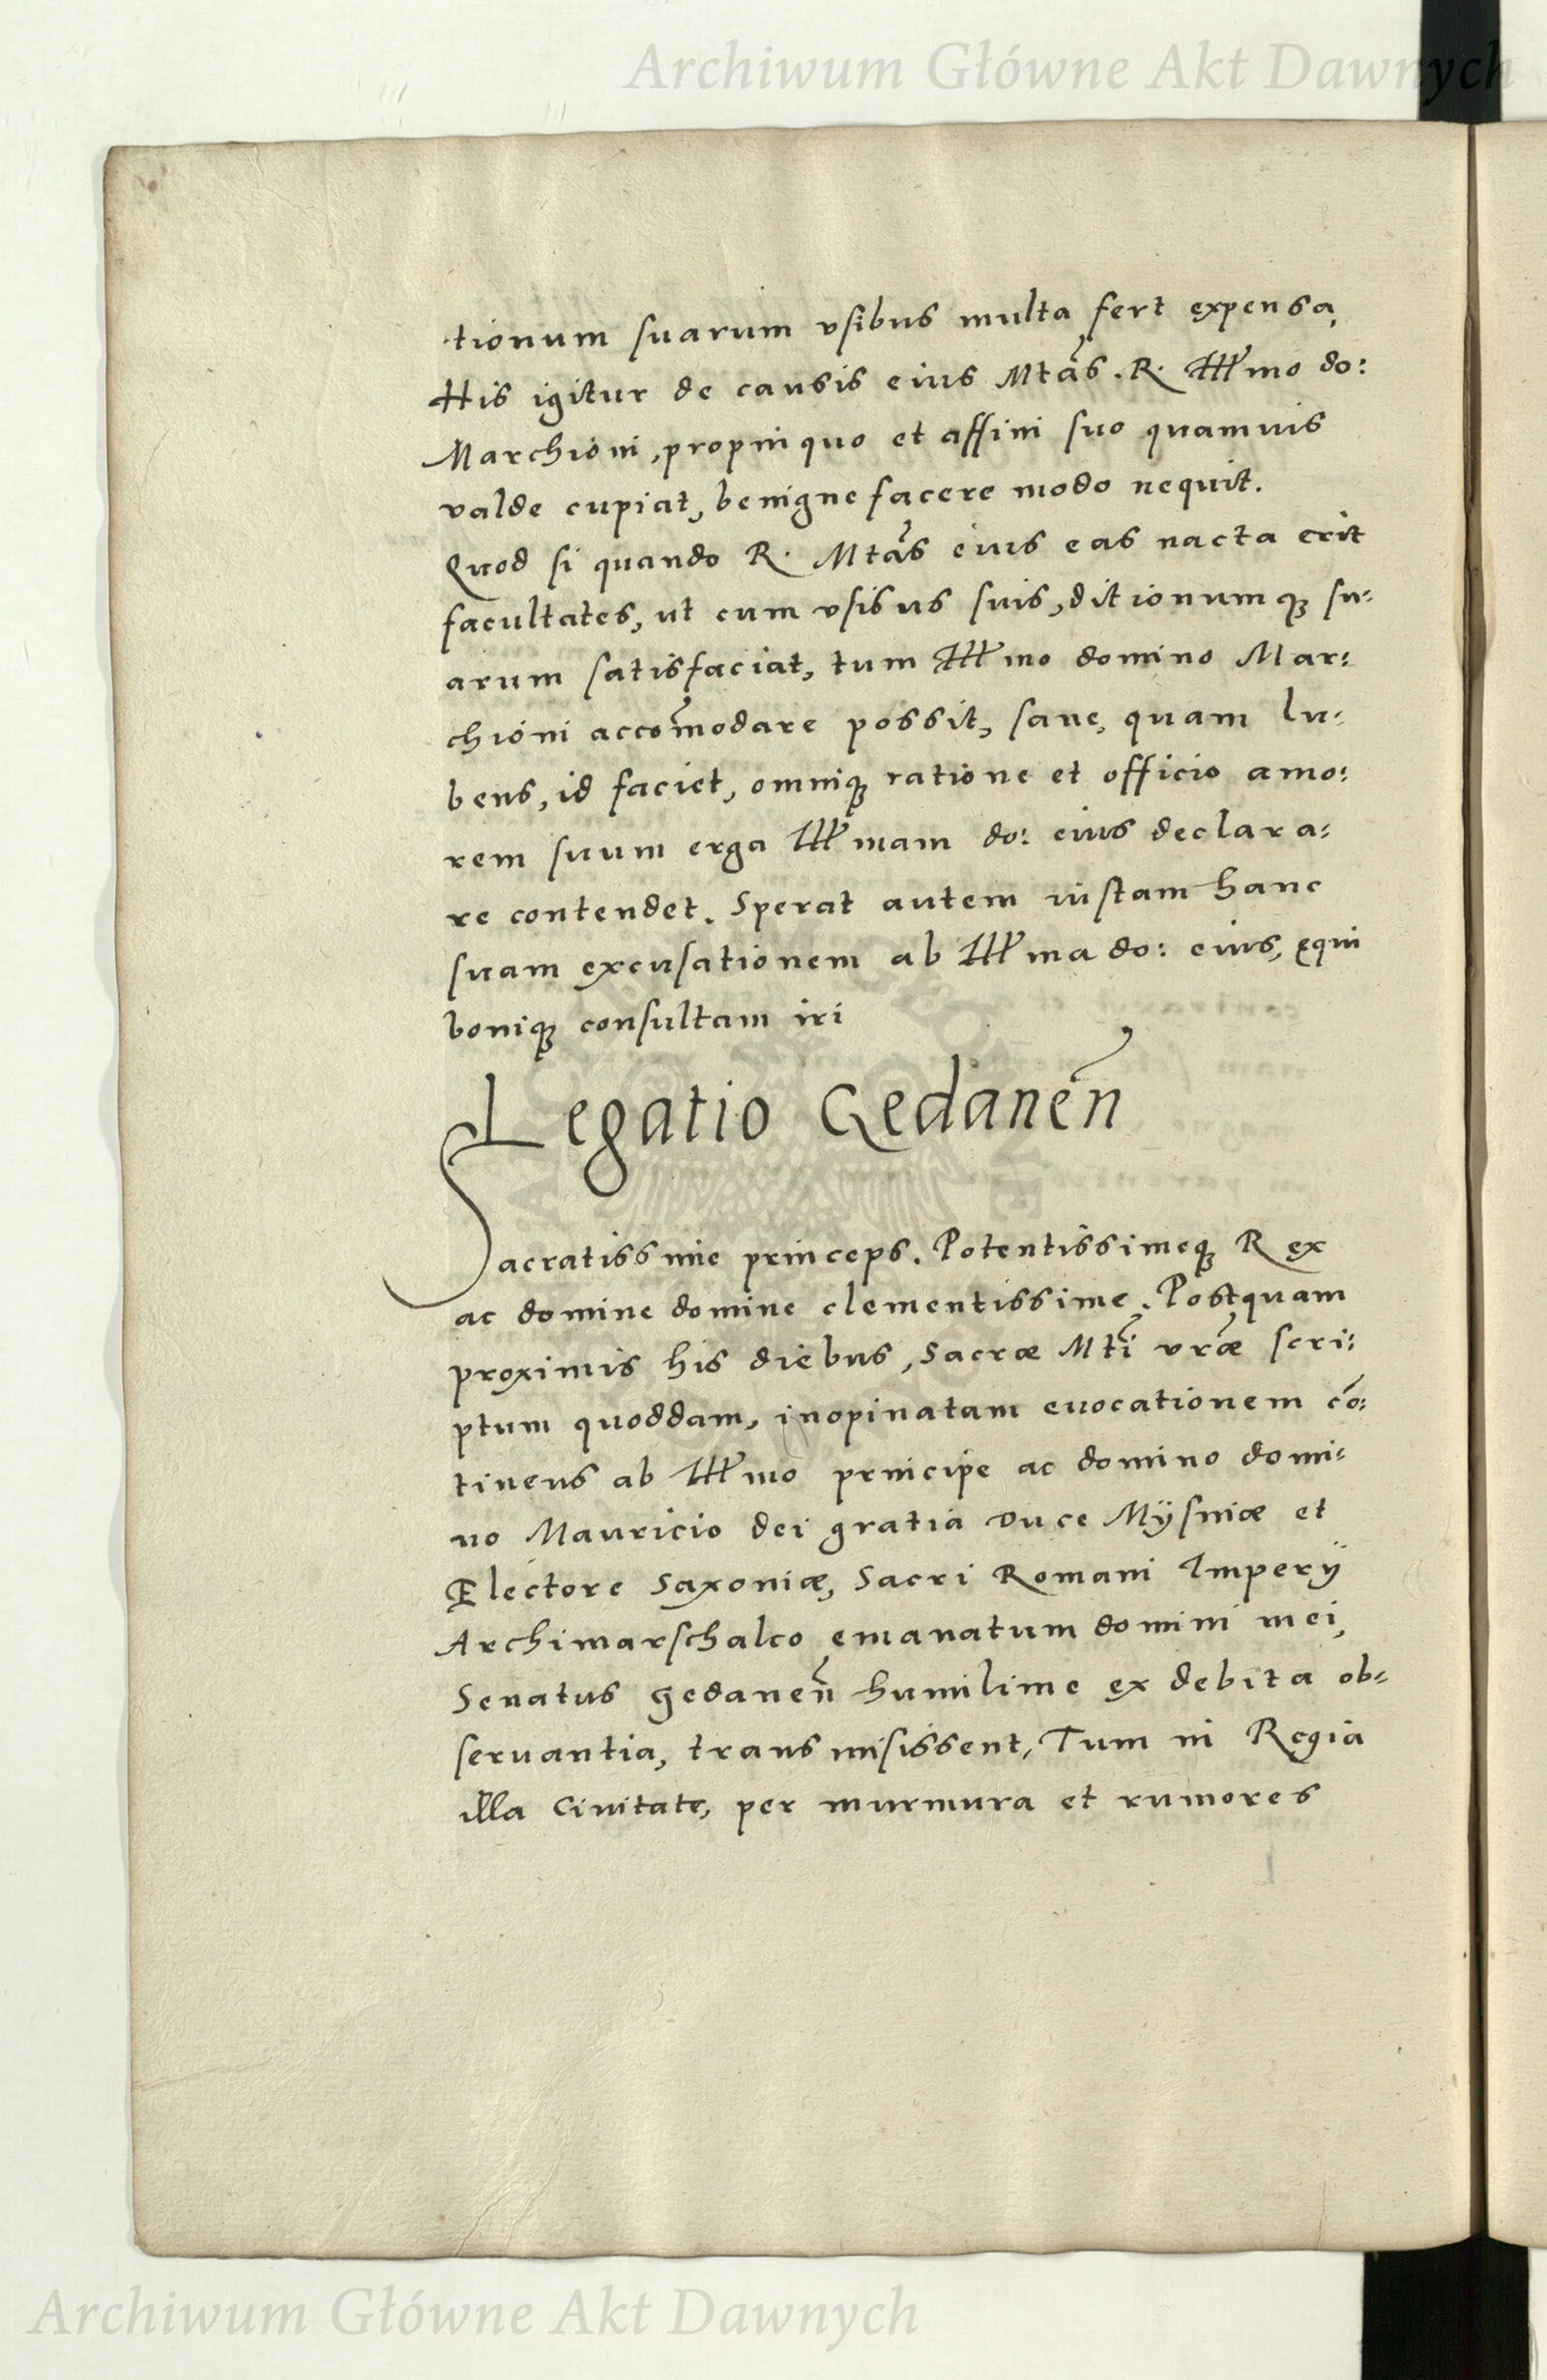 Archiwum Główne Akt Dawnych
tionum suarum vsibus multa fert expensa,
His igitur de causis eius Mtas. R. Illmo do:
Marchioni, propinquo et affini suo quamuis
valde cupiat, benigne facere modo nequit.
Quod si quando R. Mtas eius eas nacta erit
facultates, ut cum vsibus suis, ditionumq3 su:
arum satisfaciat, tum Illmo domino Mar:
chioni accom̃odare possit, sane, quam lu:
bens, id faciet, omniq3 ratione et officio amo:
rem suum erga Illmam do: eius declara:
re contendet. Sperat autem iustam hanc
suam excusationem ab Illma do: eius, ęqui
boniq3 consultam iri
Legatio Gedaneñ
Sacratissime princeps. Potentissimeq3 Rex
ac domine domine clementissime. Postquam
proximis his diebus, Sacræ Mti vræ scri:
ptum quoddam, inopinatam euocationem cõ:
tinens ab Illmo principe ac domino domi:
no Mauricio dei gratia Duce Mÿsniæ et
Electore Saxoniæ, Sacri Romani Imperÿ
Archimarschalco emanatum domini mei,
Senatus gedaneñ humilime ex debita ob:
seruantia, transmisissent, Tum in Regia
illa Ciuitate, per murmura et rumores
Archiwum Główne Akt Dawnych